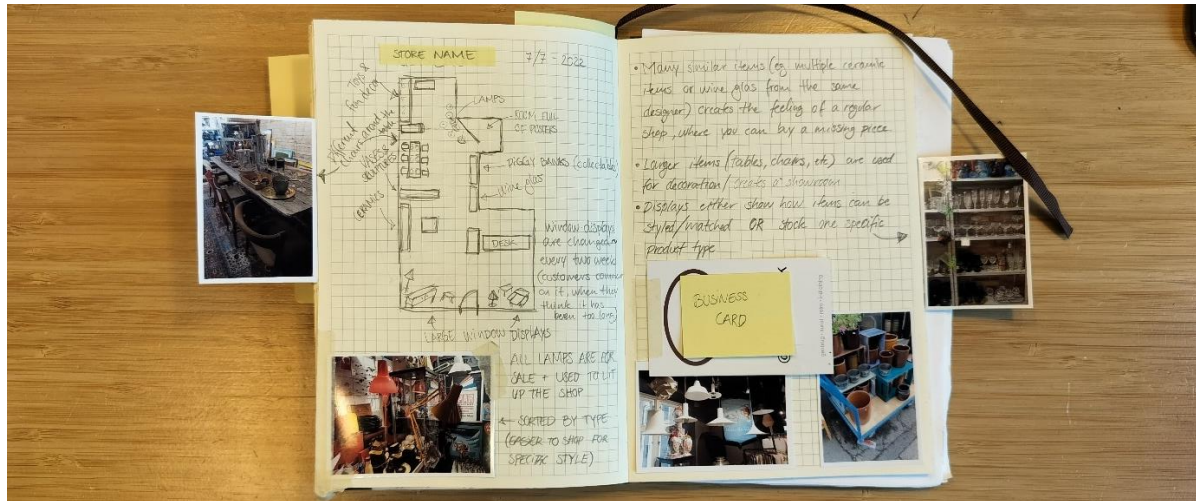 STORE NAME
7/7-2022
TOYS &
FUN DECOR
DIFFERENT
CHAIRS around the
table
VASES &
CERAMICS
LAMPS
ROOM FULL
OF POSTERS
PIGGY BANKS (collectables)
wine glas
DESK
Window displays
are changed
every two weeks
(customers comment
on it, when they
think it has
been too long)
LARGE WINDOW DISPLAYS
ALL LAMPS ARE FOR
SALE + USED TO LIT
UP THE SHOP
SORTED BY TYPE
(EASIER TO SHOP FOR
SPECIFIC STYLE)
• Many similar items (eg multiple ceramic
items or wine glas from the same
designer) creates the feeling of a regular
shop, where you can buy a missing piece
• Larger items (tables, chairs, etc) are used
for decoration/ creates a showroom
• Displays either show how items can be
styled/matched OR stock one specific
product type
BUSINESS
CARD